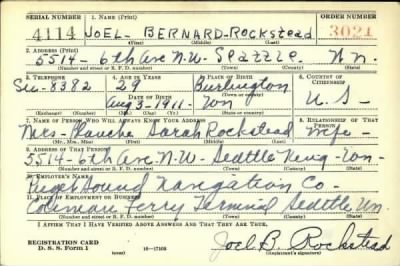 SERIAL NUMBER 1. NAME (Print) ORDER NUMBER
4114 JOEL - BERNARD - ROCKSTEAD 3021
(First) (Middle) (Last)
2. ADDRESS (Print)
5514 - 6th Ave N.W - SEATTLE Wn.
(Number and street or R. F. D. number) (Town) (County) (State)
3. TELEPHONE 4. AGE IN YEARS 5. PLACE OF BIRTH 6. COUNTRY OF CITIZENSHIP
Su-8382 29 Burlington
DATE OF BIRTH (Town or county)
Aug 3-1911 - Wn U.S-
(Exchange) (Number) (Mo.) (Day) (Yr.) (State or country)
7. NAME OF PERSON WHO WILL ALWAYS KNOW YOUR ADDRESS 8. RELATIONSHIP OF THAT PERSON
Mrs - Blanche Sarah Rockstead wife -
(Mr., Mrs., Miss) (First) (Middle) (Last)
9. ADDRESS OF THAT PERSON
5514 - 6th Ave. N-W - Seattle King - Wn -
(Number and street or R. F. D. number) (Town) (County) (State)
10. EMPLOYER'S NAME
Puget Sound Navigation Co -
11. PLACE OF EMPLOYMENT OR BUSINESS
Colman Ferry Terminal Seattle Wn.
(Number and street or R. F. D. number) (Town) (County) (State)
I AFFIRM THAT I HAVE VERIFIED ABOVE ANSWERS AND THAT THEY ARE TRUE.
REGISTRATION CARD
D. S. S. Form 1 (over) 16-17105
Joel B. Rockstead
(Registrant's signature)